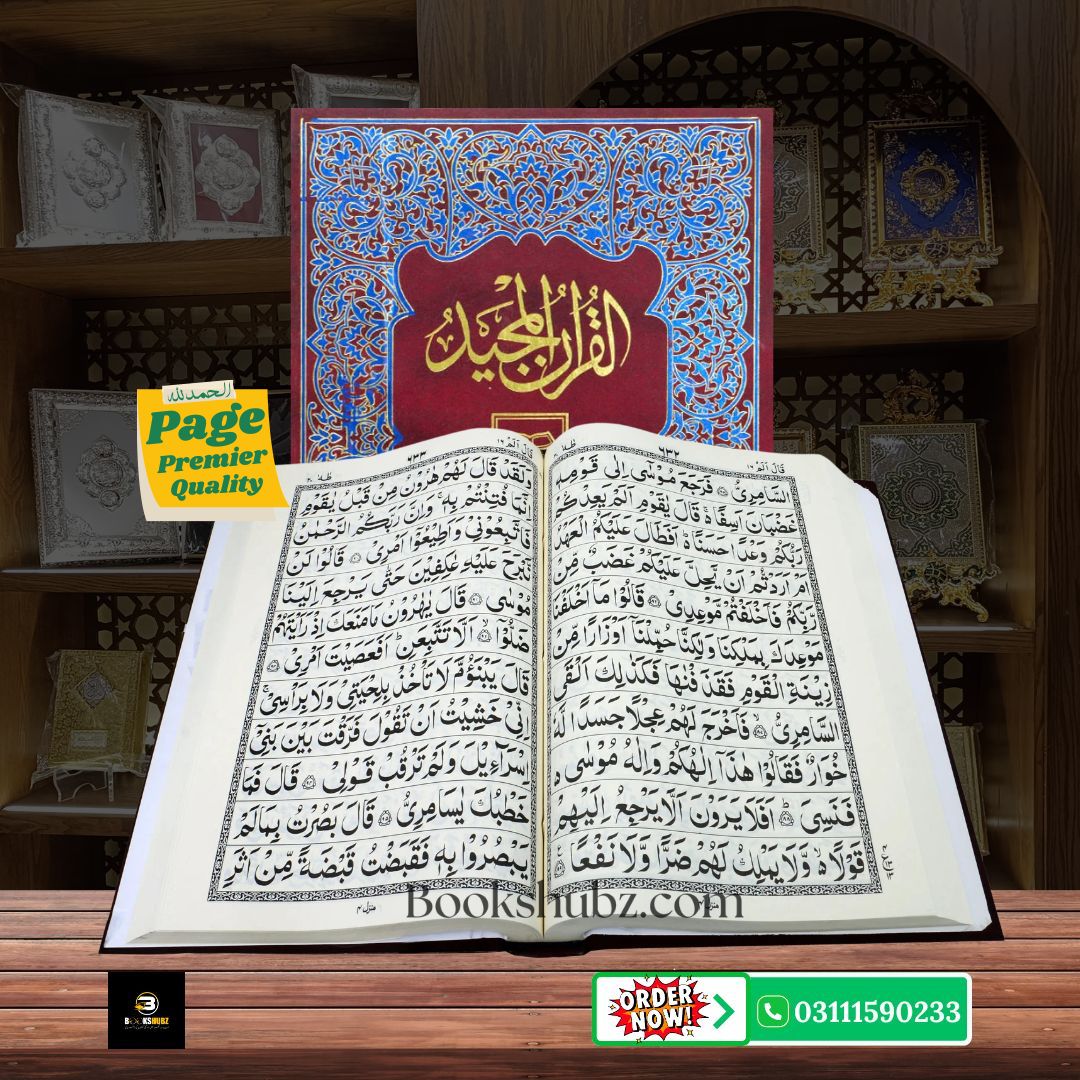 القرانُ المجیدُ
الحمدللہ
Page
Premier
Quality
قَالَ اَلَمْ ١٦
٦٣٢
طٰهٰ
السَّامِرِىُّ ۞ فَرَجَعَ مُوْسٰۤى اِلٰى قَوْمِهٖ
غَضْبَانَ اَسِفًا ۚ قَالَ يٰقَوْمِ اَلَمْ يَعِدْكُمْ
رَبُّكُمْ وَعْدًا حَسَنًا ؕ اَفَطَالَ عَلَيْكُمُ الْعَهْدُ
اَمْ اَرَدْتُّمْ اَنْ يَّحِلَّ عَلَيْكُمْ غَضَبٌ مِّنْ
رَّبِّكُمْ فَاَخْلَفْتُمْ مَّوْعِدِىْ ۞ قَالُوْا مَاۤ اَخْلَفْنَا
مَوْعِدَكَ بِمَلْكِنَا وَلٰكِنَّا حُمِّلْنَاۤ اَوْزَارًا مِّنْ
زِيْنَةِ الْقَوْمِ فَقَذَفْنٰهَا فَكَذٰلِكَ اَلْقَى
السَّامِرِىُّ ۞ فَاَخْرَجَ لَهُمْ عِجْلًا جَسَدًا لَّهٗ
خُوَارٌ فَقَالُوْا هٰذَاۤ اِلٰهُكُمْ وَاِلٰهُ مُوْسٰى ۥ
فَنَسِىَ ۞ اَفَلَا يَرَوْنَ اَلَّا يَرْجِعُ اِلَيْهِمْ
قَوْلًا ۙ وَّلَا يَمْلِكُ لَهُمْ ضَرًّا وَّلَا نَفْعًا ۞
منزل ٤
قَالَ اَلَمْ ١٦
٦٣٣
طٰهٰ ٢٠
وَلَقَدْ قَالَ لَهُمْ هٰرُوْنُ مِنْ قَبْلُ يٰقَوْمِ
اِنَّمَا فُتِنْتُمْ بِهٖ ۚ وَاِنَّ رَبَّكُمُ الرَّحْمٰنُ
فَاتَّبِعُوْنِىْ وَاَطِيْعُوْۤا اَمْرِىْ ۞ قَالُوْا لَنْ
نَّبْرَحَ عَلَيْهِ عٰكِفِيْنَ حَتّٰى يَرْجِعَ اِلَيْنَا
مُوْسٰى ۞ قَالَ يٰهٰرُوْنُ مَا مَنَعَكَ اِذْ رَاَيْتَهُمْ
ضَلُّوْۤا ۞ اَلَّا تَتَّبِعَنِ ؕ اَفَعَصَيْتَ اَمْرِىْ ۞
قَالَ يَبْنَؤُمَّ لَا تَاْخُذْ بِلِحْيَتِىْ وَلَا بِرَاْسِىْ ۚ
اِنِّىْ خَشِيْتُ اَنْ تَقُوْلَ فَرَّقْتَ بَيْنَ بَنِىْۤ
اِسْرَآءِيْلَ وَلَمْ تَرْقُبْ قَوْلِىْ ۞ قَالَ فَمَا
خَطْبُكَ يٰسَامِرِىُّ ۞ قَالَ بَصُرْتُ بِمَا لَمْ
يَبْصُرُوْا بِهٖ فَقَبَضْتُ قَبْضَةً مِّنْ اَثَرِ
منزل ٤
Bookshubz.com
BOOKSHUBZ
ORDER
NOW!
03111590233